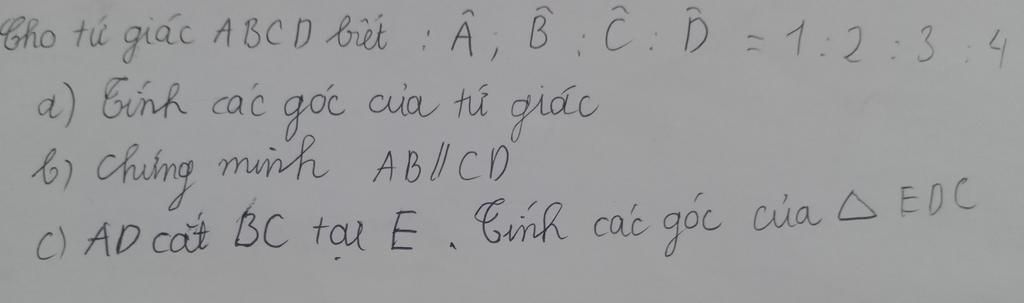 Cho tứ giác ABCD biết : Â ; B̂ : Ĉ : D̂ = 1 : 2 : 3 : 4
a) Tính các góc của tứ giác
b) Chứng minh AB // CD
c) AD cắt BC tại E. Tính các góc của △ EDC